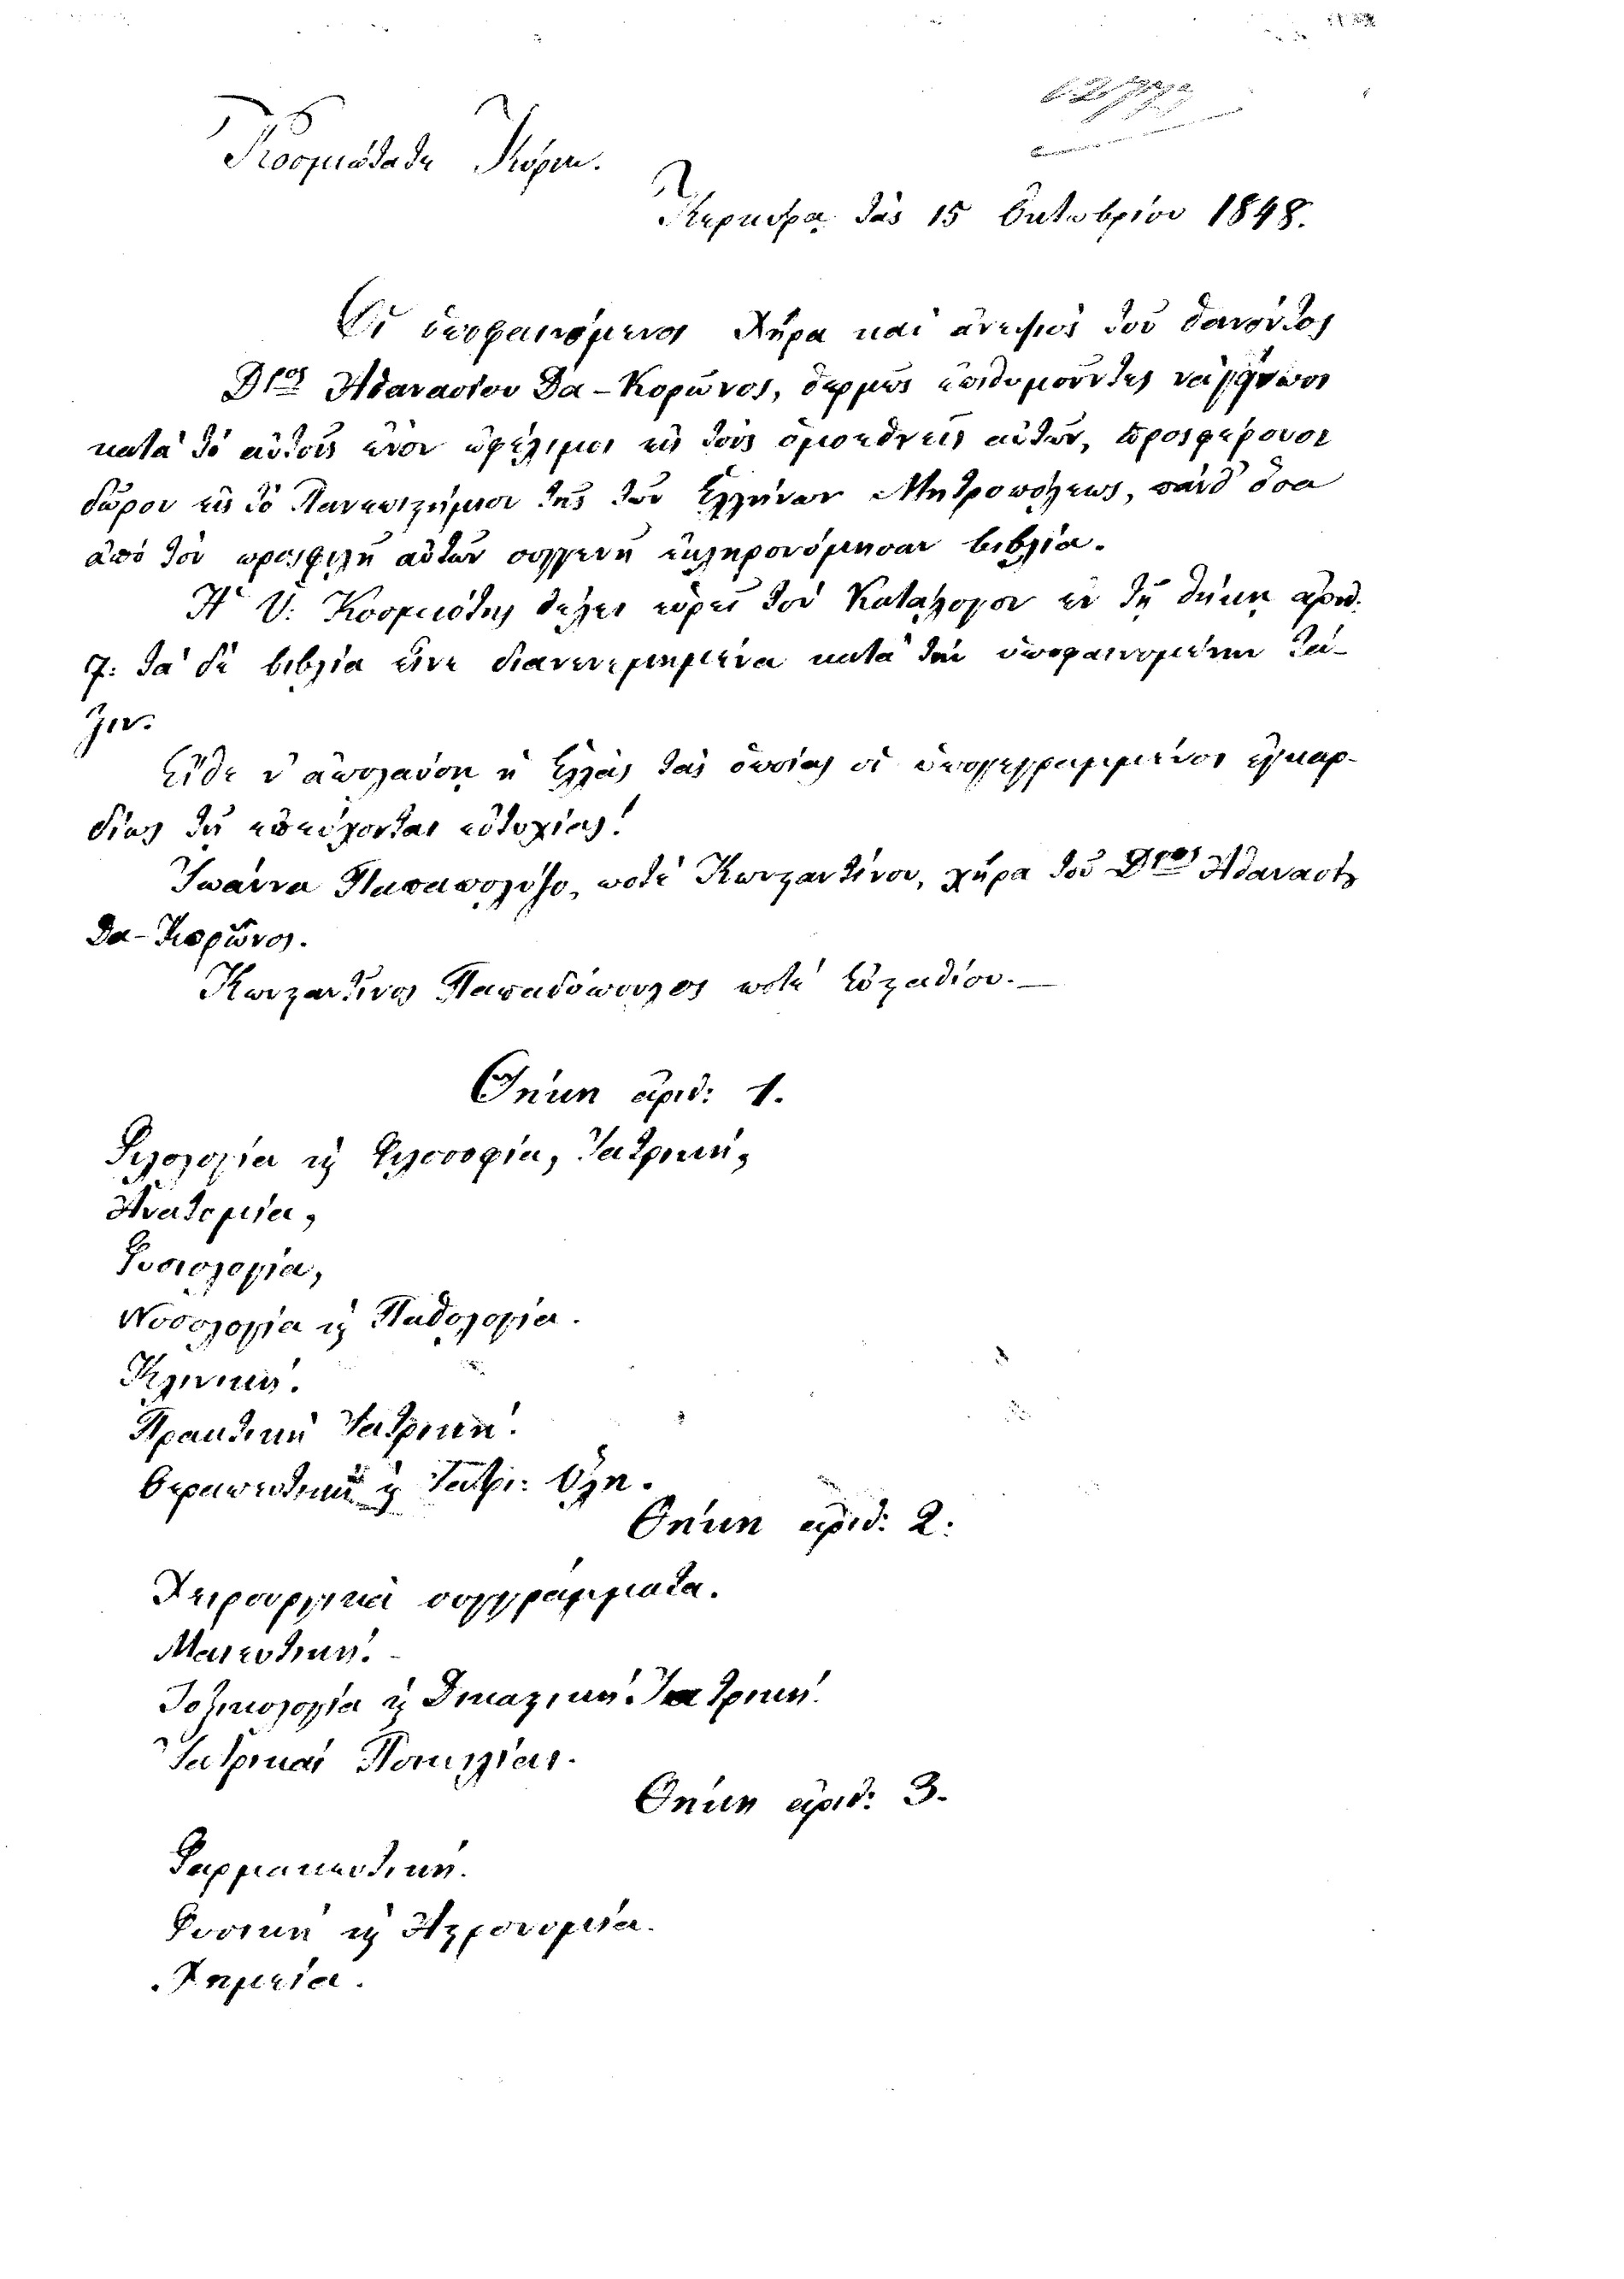 Κοσμιώτατε Κύριε.
Κερκύρᾳ τὰς 15 Ὀκτωβρίου 1848.
Οἱ ὑποφαινόμενοι Χήρα καὶ ἀνεψιὸς τοῦ θανόντος
Δρος Ἀθανασίου Δα-Κορῶνος, θερμῶς ἐπιθυμοῦντες νὰ φανῶσι
κατὰ τὸ αὐτοῖς ἐνὸν ὠφέλιμοι εἰς τοὺς ὁμοεθνεῖς αὐτῶν, προσφέρουσι
δῶρον εἰς τὸ Πανεπιστήμιον τῆς τῶν Ἑλλήνων Μητροπόλεως, πάνθ' ὅσα
ἀπὸ τὸν προσφιλῆ αὐτῶν συγγενῆ ἐκληρονόμησαν βιβλία.
Ἡ Ὑ: Κοσμιότης θέλει εὕρει τὸν Κατάλογον ἐν τῇ θήκῃ ἀριθ.
7: τὰ δὲ βιβλία εἶνε διανενεμημένα κατὰ τὴν ὑποφαινομένην τά-
ξιν:
Εἴθε ν' ἀπολαύσῃ ἡ Ἑλλὰς τὰς ὁποίας οἱ ὑπογεγραμμένοι ἐγκαρ-
δίως τῇ ἐπεύχονται εὐτυχίας!
Ἰωάννα Παπαπολύζο, ποτὲ Κωνσταντίνου, χήρα τοῦ Δρος Ἀθανασίου
Δα-Κορῶνος.
Κωνσταντῖνος Παπαδόπουλος ποτὲ Εὐσταθίου.—
Θήκη ἀριθ: 1.
Φιλολογία ϗ Φιλοσοφία, Ἰατρική,
Ἀνατομία,
Φυσιολογία,
Νοσολογία ϗ Παθολογία.
Κλινική.
Πρακτικὴ Ἰατρική.
Θεραπευτικὴ ϗ Ἰατρι: Ὕλη.
Θήκη ἀριθ: 2:
Χειρουργικὰ συγγράμματα.
Μαιευτική.
Τοξικολογία ϗ Δικαστικὴ Ἰατρική.
Ἰατρικαὶ Ποικιλίαι.
Θήκη ἀριθ: 3.
Φαρμακευτική.
Φυσικὴ ϗ Ἀστρονομία.
Χημεία.